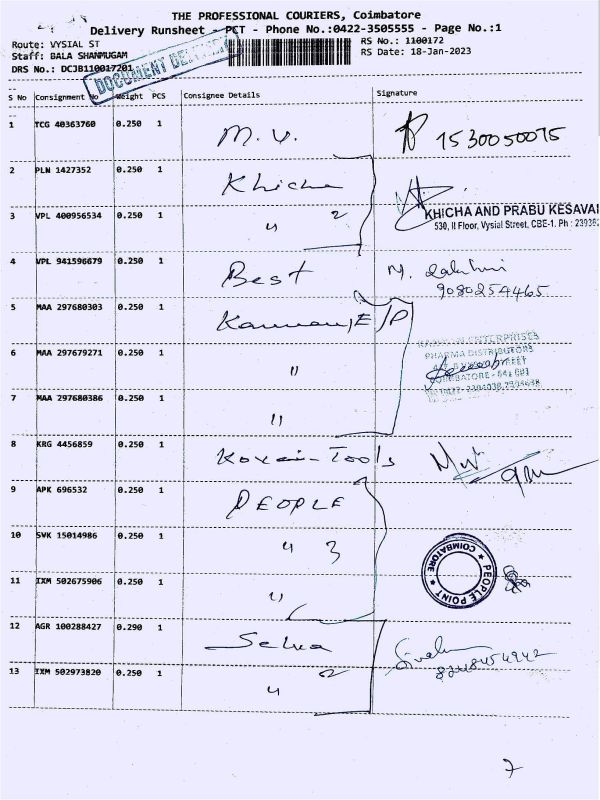 THE PROFESSIONAL COURIERS, Coimbatore
Delivery Runsheet - PCT - Phone No.:0422-3505555 - Page No.:1
Route: VYSIAL ST
RS No.: 1100172
Staff: BALA SHANMUGAM
RS Date: 18-Jan-2023
DRS No.: DCJB110017201
DOCUMENT DELIVERY
S No Consignment No Weight PCS Consignee Details Signature
1 TCG 40363760 0.250 1 M.V. 1530050075
2 PLN 1427352 0.250 1 Khicha
KHICHA AND PRABU KESAVAN
530, II Floor, Vysial Street, CBE-1. Ph : 239382
3 VPL 400956534 0.250 1 " 2
4 VPL 941596679 0.250 1 Best M.
9080254465
5 MAA 297680303 0.250 1 Kannan, E/P
ENTERPRISES
PHARMA DISTRIBUTORS
6 MAA 297679271 0.250 1 "
COIMBATORE - 641 001
7 MAA 297680386 0.250 1 "
8 KRG 4456859 0.250 1 Kovai-Tools
9 APK 696532 0.250 1 PEOPLE
10 SVK 15014986 0.250 1 " 3
COIMBATORE
PEOPLE POINT
11 IXM 502675906 0.250 1 "
12 AGR 100288427 0.290 1 Selva
8248454942
13 IXM 502973820 0.250 1 " 2
7